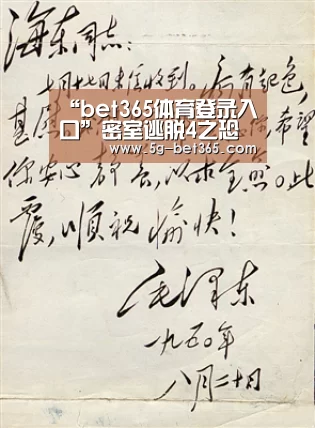 海东同志：
七月十七日来信收到。病有起色，
“bet365体育登录入
口”密室逃脱4之恐
www.5g-bet365.com
甚慰 希望
你安心静养，以求全愈。此
覆，顺祝愉快！
毛泽东
一九五〇年
八月二十日